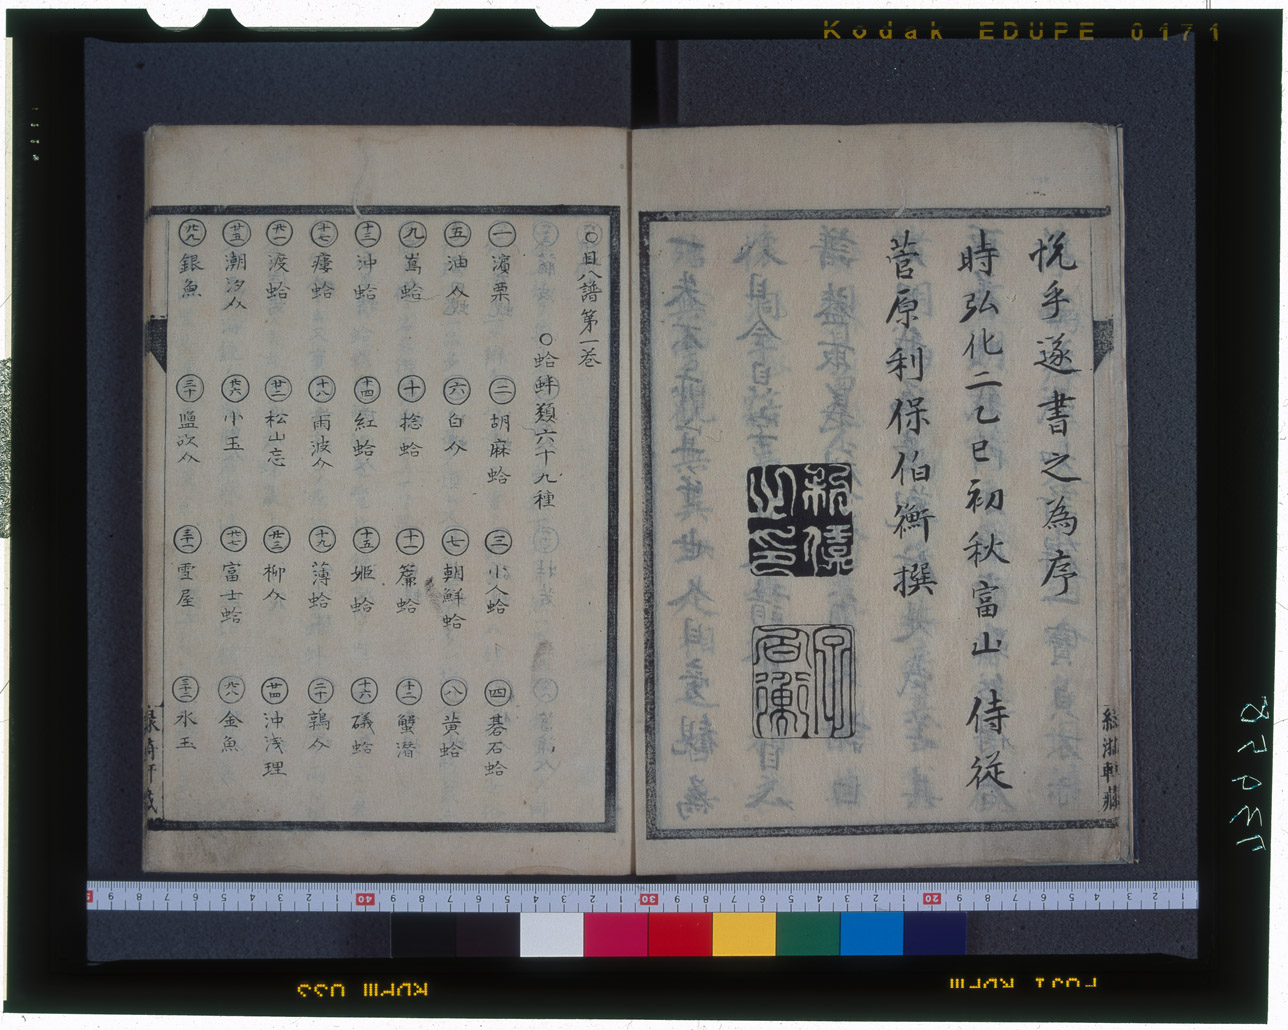 Kodak EDUPE 0171
悦乎遂書之為序
時弘化二乙巳初秋富山 侍従
菅原利保伯衡撰
○目八譜第一巻
○蛤蚌類六十九種
㊀濱栗 ㊁胡麻蛤 ㊂小人蛤 ㊃碁石蛤
㊄油仝 ㊅白仝 ㊆朝鮮蛤 ㊇黄蛤
㊈蔦蛤 ㊉捻蛤 十一簾蛤 十二蟹潜
十三沖蛤 十四紅蛤 十五姫蛤 十六礒蛤
十七痩蛤 十八雨波仝 十九薄蛤 二十鶉仝
廿一渡蛤 廿二松山忘 廿三柳仝 廿四沖浅理
廿五潮汐仝 廿六小玉 廿七富士蛤 廿八金魚
廿九銀魚 三十塩吹仝 三十一雪屋 三十二氷玉